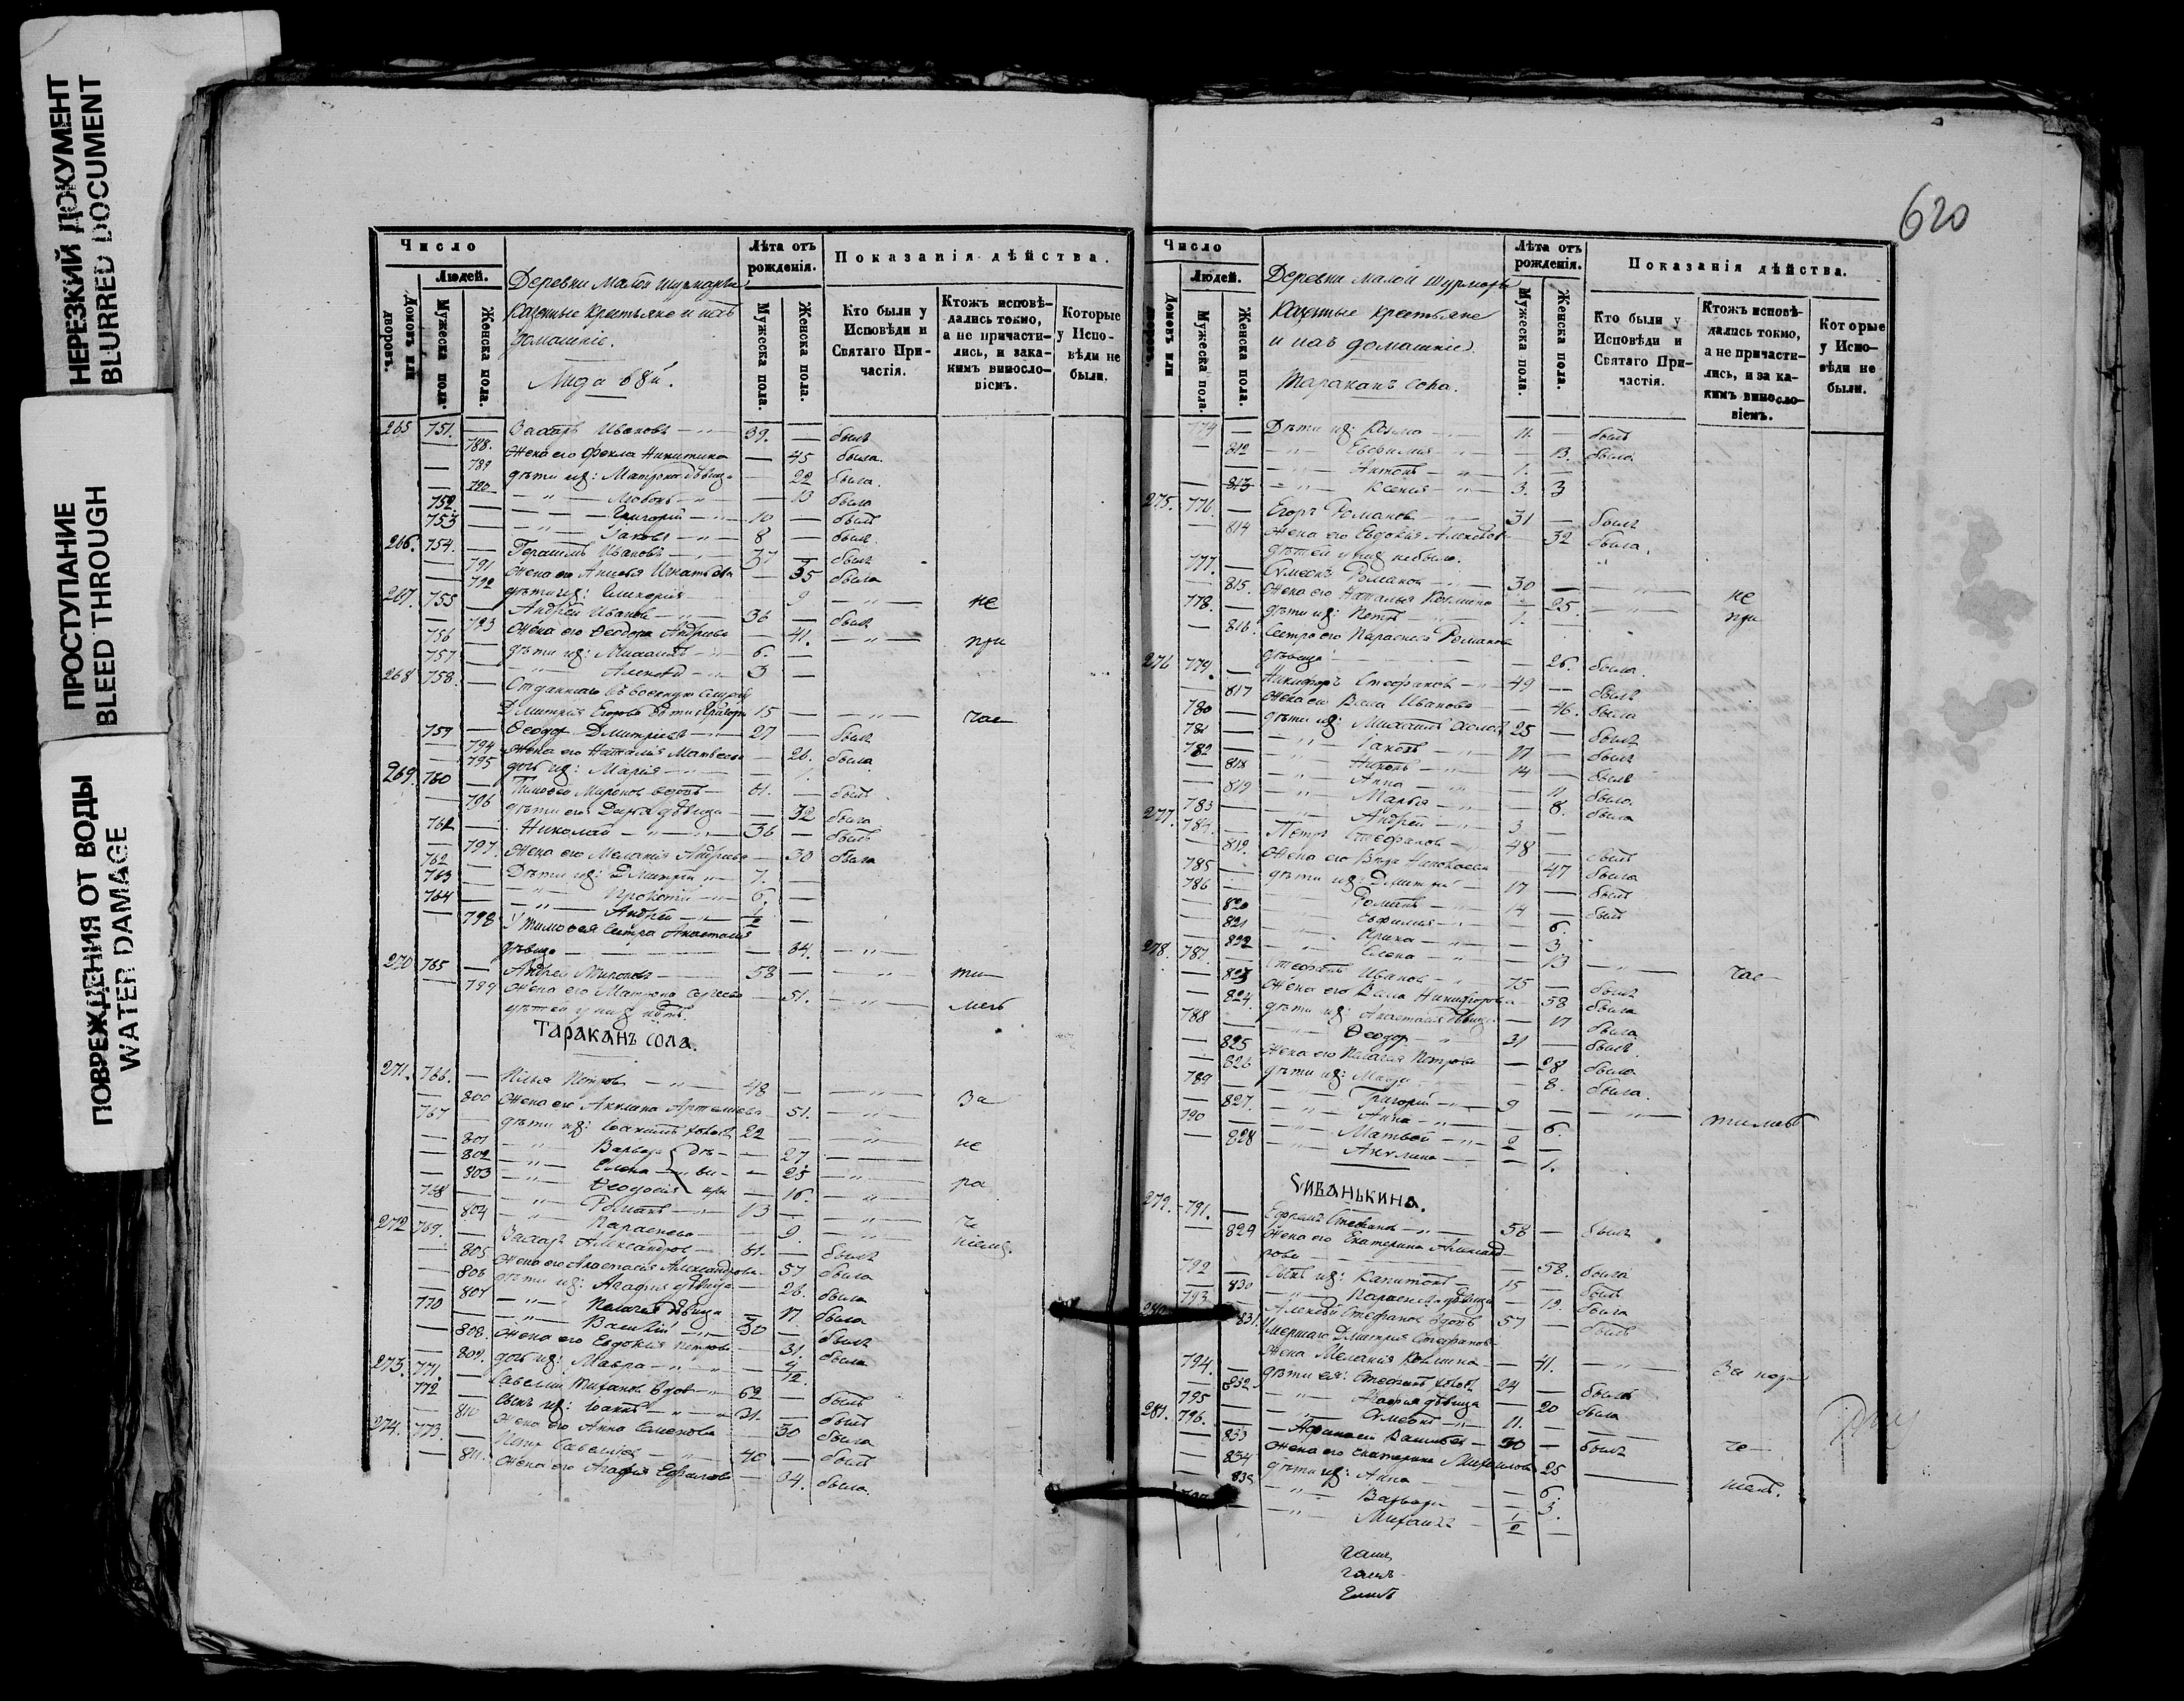 НЕРЕЗКИЙ ДОКУМЕНТ
BLURRED DOCUMENT
ПРОСТУПАНИЕ
BLEED THROUGH
ПОВРЕЖДЕНИЯ ОТ ВОДЫ
WATER DAMAGE
620
Число
Людей.
Домовъ или дворовъ.
Мужеска пола.
Женска пола.
Деревни Малой Шурмары
Казенные Крестьяне и ихъ
домашніе.
Лѣта отъ рожденія.
Мужеска пола.
Женска пола.
Показанія дѣйства.
Кто были у Исповѣди и Святаго Причастія.
Ктожъ исповѣдались токмо, а не причастились, и за какимъ винословіемъ.
Которые у Исповѣди не были.
265 751. — Захаръ Ивановъ 39. — былъ
788. Жена его Фекла Никитина — 45 была.
789 дѣти ихъ: Матрона дѣвица — 22 была.
790 Любовь — 13 была
752. — Григорій 10 — былъ
753 — Іаковъ 8 — былъ
266. 754. — Герасимъ Ивановъ 37 — былъ
791 Жена его Анисья Игнатьева — 35 была
792 дѣти ихъ: Гликерія 9 не
267. 755 — Андрей Ивановъ 36 — былъ
793 Жена его Феодора Андреева — 41. при
756 — дѣти ихъ: Михаилъ 6. —
757 — Алексѣй 3 —
268 758. — Отданнаго въ военную службу
Дмитрія Егорова дѣти: Григорій 15 — час
759 — Феодоръ Дмитріевъ 27 — былъ
794 Жена его Наталія Матвеева — 26. была
795 дочь ихъ: Марія 1.
269. 760 — Тимофей Мироновъ вдовъ 61. — былъ
796 дѣти его Дарья дѣвица — 32 была
761 — Николай 36 — былъ
797. Жена его Меланія Андреева — 30 была
762 — Дѣти ихъ: Дмитрій 7. —
763 — Прокопій 6. —
764 — Андрей 1/2 —
798 У Тимофея сестра Анастасія
дѣвица — 64.
270 765 — Андрей Мироновъ 58 — ти
799 Жена его Матрона Сергеева — 51. лись
дѣтей у нихъ нѣтъ.
Тараканъ сола.
271. 766. — Илья Петровъ 48 — За
800 Жена его Акулина Артемьева — 51.
767 — дѣти ихъ: Іоакимъ холостъ 22 — не
801 Варвара — 27
802 Елена — 25
803 Феодосія — 16. ра
768 — Романъ 13 —
804 Параскева — 9.
272 769. — Захаръ Александровъ 61. — былъ
805. Жена его Анастасія Александрова — 57 была
806 дѣти ихъ: Агафія дѣвица — 26. была
807 Пелагея дѣвица — 17. была
770 — Василій 30 — былъ
808. Жена его Евдокія Петрова — 31. была
809. дочь ихъ: Мавра
273. 771. — Савелій вдовъ 62 — былъ
772 — Сынъ его: Іоаннъ 31. — былъ
810 Жена его Анна Семенова — 30 была
274. 773. — Петръ Савельевъ 40 — былъ
811. Жена его Агафія Ефремова — 34. была.
Число
Людей.
Домовъ или дворовъ.
Мужеска пола.
Женска пола.
Деревни Малой Шурмары
Казенные Крестьяне
и ихъ домашніе.
Тараканъ сола.
Лѣта отъ рожденія.
Мужеска пола.
Женска пола.
Показанія дѣйства.
Кто были у Исповѣди и Святаго Причастія.
Ктожъ исповѣдались токмо, а не причастились, и за какимъ винословіемъ.
Которые у Исповѣди не были.
774 — Дѣти ихъ: Козма 11. — былъ
812 Евфимія — 13. была
Антонъ 1. —
813 Ксенія 3. 3
275. 776. — Егоръ Романовъ 31 — былъ
814 Жена его Евдокія Алексѣева — 32 была.
дѣтей у нихъ небыло.
777. — Сумеонъ Романовъ 30 — не
815. Жена его Наталья Козмина — 25. при
778. — дѣти ихъ: Петръ 1. —
816. Сестра его Параскева Романова
дѣвица — 26. была.
276 779. — Никифоръ Стефановъ 49 — былъ
817 Жена его Васса Иванова — 46. была
780 — дѣти ихъ: Михаилъ холостъ 25 — былъ
781 — Іаковъ 17 — былъ
782 — Никонъ 14 — былъ
818 Анна — 11 была.
819 Марья — 8. была
783 — Андрей 3. —
277. 784. — Петръ Стефановъ 48 — былъ
819. Жена его Вѣра Николаева — 47 была
785 — дѣти ихъ: Дмитрій 17 — былъ
786 — Романъ 14 — былъ
820 Евфимія — 6.
821 Ирина — 3
822 Елена — 13 час
278. 787. — Стефанъ Ивановъ 75 — былъ
823 Жена его Васса Никифорова — 58 была
824. дѣти ихъ: Анастасія дѣвица — 17 была
788 — Феодоръ 31 — былъ
825 Жена его Пелагея Петрова — 28 была
826 дѣти ихъ: — 8. была.
789 — Григорій 9 — тились
827. Анна — 6.
790 — Матвей 2 —
828 Акулина — 1.
Сиванькина.
279. 791. — Стефановъ 58 — былъ
829 Жена его Екатерина Александ
рова — 58. была
792 — Сынъ ихъ: Капитонъ 15 — былъ
830 Параскева дѣвица — 19. была
280. 793. — Алексѣй Стефановъ вдовъ 57 — былъ
831. Умершаго Дмитрія Стефанова
жена Меланія Козмина — 41. За
794. — дѣти ея: Стефанъ холостъ 24 — былъ
832 дѣвица — 20 была
795 — Сумеонъ 11. —
281. 796. — Афанасій Васильевъ 30 — былъ
833 Жена его Екатерина Михайлова — 25.
834 дѣти ихъ: Анна — 6.
835 Варвара — 3.
Михаилъ 1/2 —